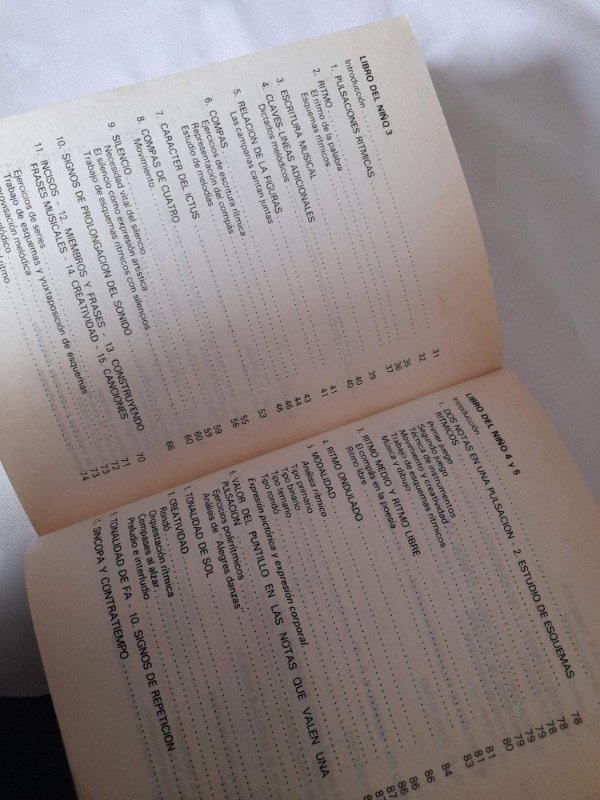 LIBRO DEL NIÑO 3
Introducción 31
1. PULSACIONES RITMICAS 32
2. RITMO 35
El ritmo de la palabra 36
Esquemas rítmicos 37
3. ESCRITURA MUSICAL 39
4. CLAVES-LINEAS ADICIONALES 40
Dictados melódicos 40
5. RELACION DE LA FIGURAS 41
Las campanas cantan juntas 41
6. COMPAS 43
Ejercicios de escritura rítmica 44
Representación del compás 46
Estudio de melodías 46
7. CARACTER DEL ICTUS 53
8. COMPAS DE CUATRO 55
Movimiento 56
9. SILENCIO 59
Necesidad vital del silencio 59
El silencio como expresión artística 60
Trabajo de esquemas rítmicos con silencios 60
10. SIGNOS DE PROLONGACION DEL SONIDO 66
11. INCISOS - 12. MIEMBROS Y FRASES - 13. CONSTRUYENDO
FRASES MUSICALES - 14. CREATIVIDAD - 15. CANCIONES 70
Ejercicios de series 71
Trabajo de esquemas y yuxtaposición de esquemas 72
melódica 73
73
ritmo 74
LIBRO DEL NIÑO 4 y 5
Introducción 78
1. DOS NOTAS EN UNA PULSACION - 2. ESTUDIO DE ESQUEMAS
RITMICOS 78
Primer juego 78
Segundo juego 79
Técnica de instrumentos 79
Movimiento y creatividad 79
Trabajo de esquemas rítmicos 80
Música y dibujo 81
RITMO MEDIO Y RITMO LIBRE 81
El compás en la poesía 83
Ritmo libre
4. RITMO ONDULADO
5. MODALIDAD
Análisis rítmico
Tipo primario
Tipo binario
Tipo ternario
Tipo rondó
Expresión pictórica y expresión corporal
6. VALOR DEL PUNTILLO EN LAS NOTAS QUE VALEN UNA
PULSACION
Ejercicios polirrítmicos
Análisis de "Alegres danzas"
TONALIDAD DE SOL
CREATIVIDAD
Rondó
Orquestación rítmica
Compases al alzar
Preludio e interludio
TONALIDAD DE FA - 10. SIGNOS DE REPETICION
SINCOPA Y CONTRATIEMPO